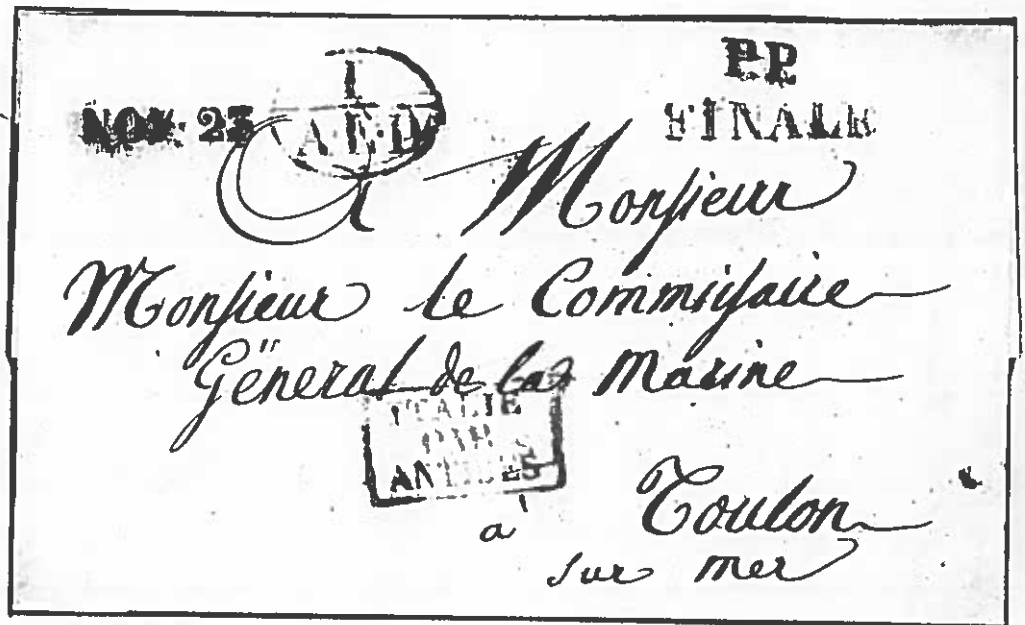 P.P.
NOV. 23
FINALE
A Monsieur
Monsieur le Commissaire
Général de la Marine
ITALIE
PAR
ANTIBES
a Toulon
sur mer